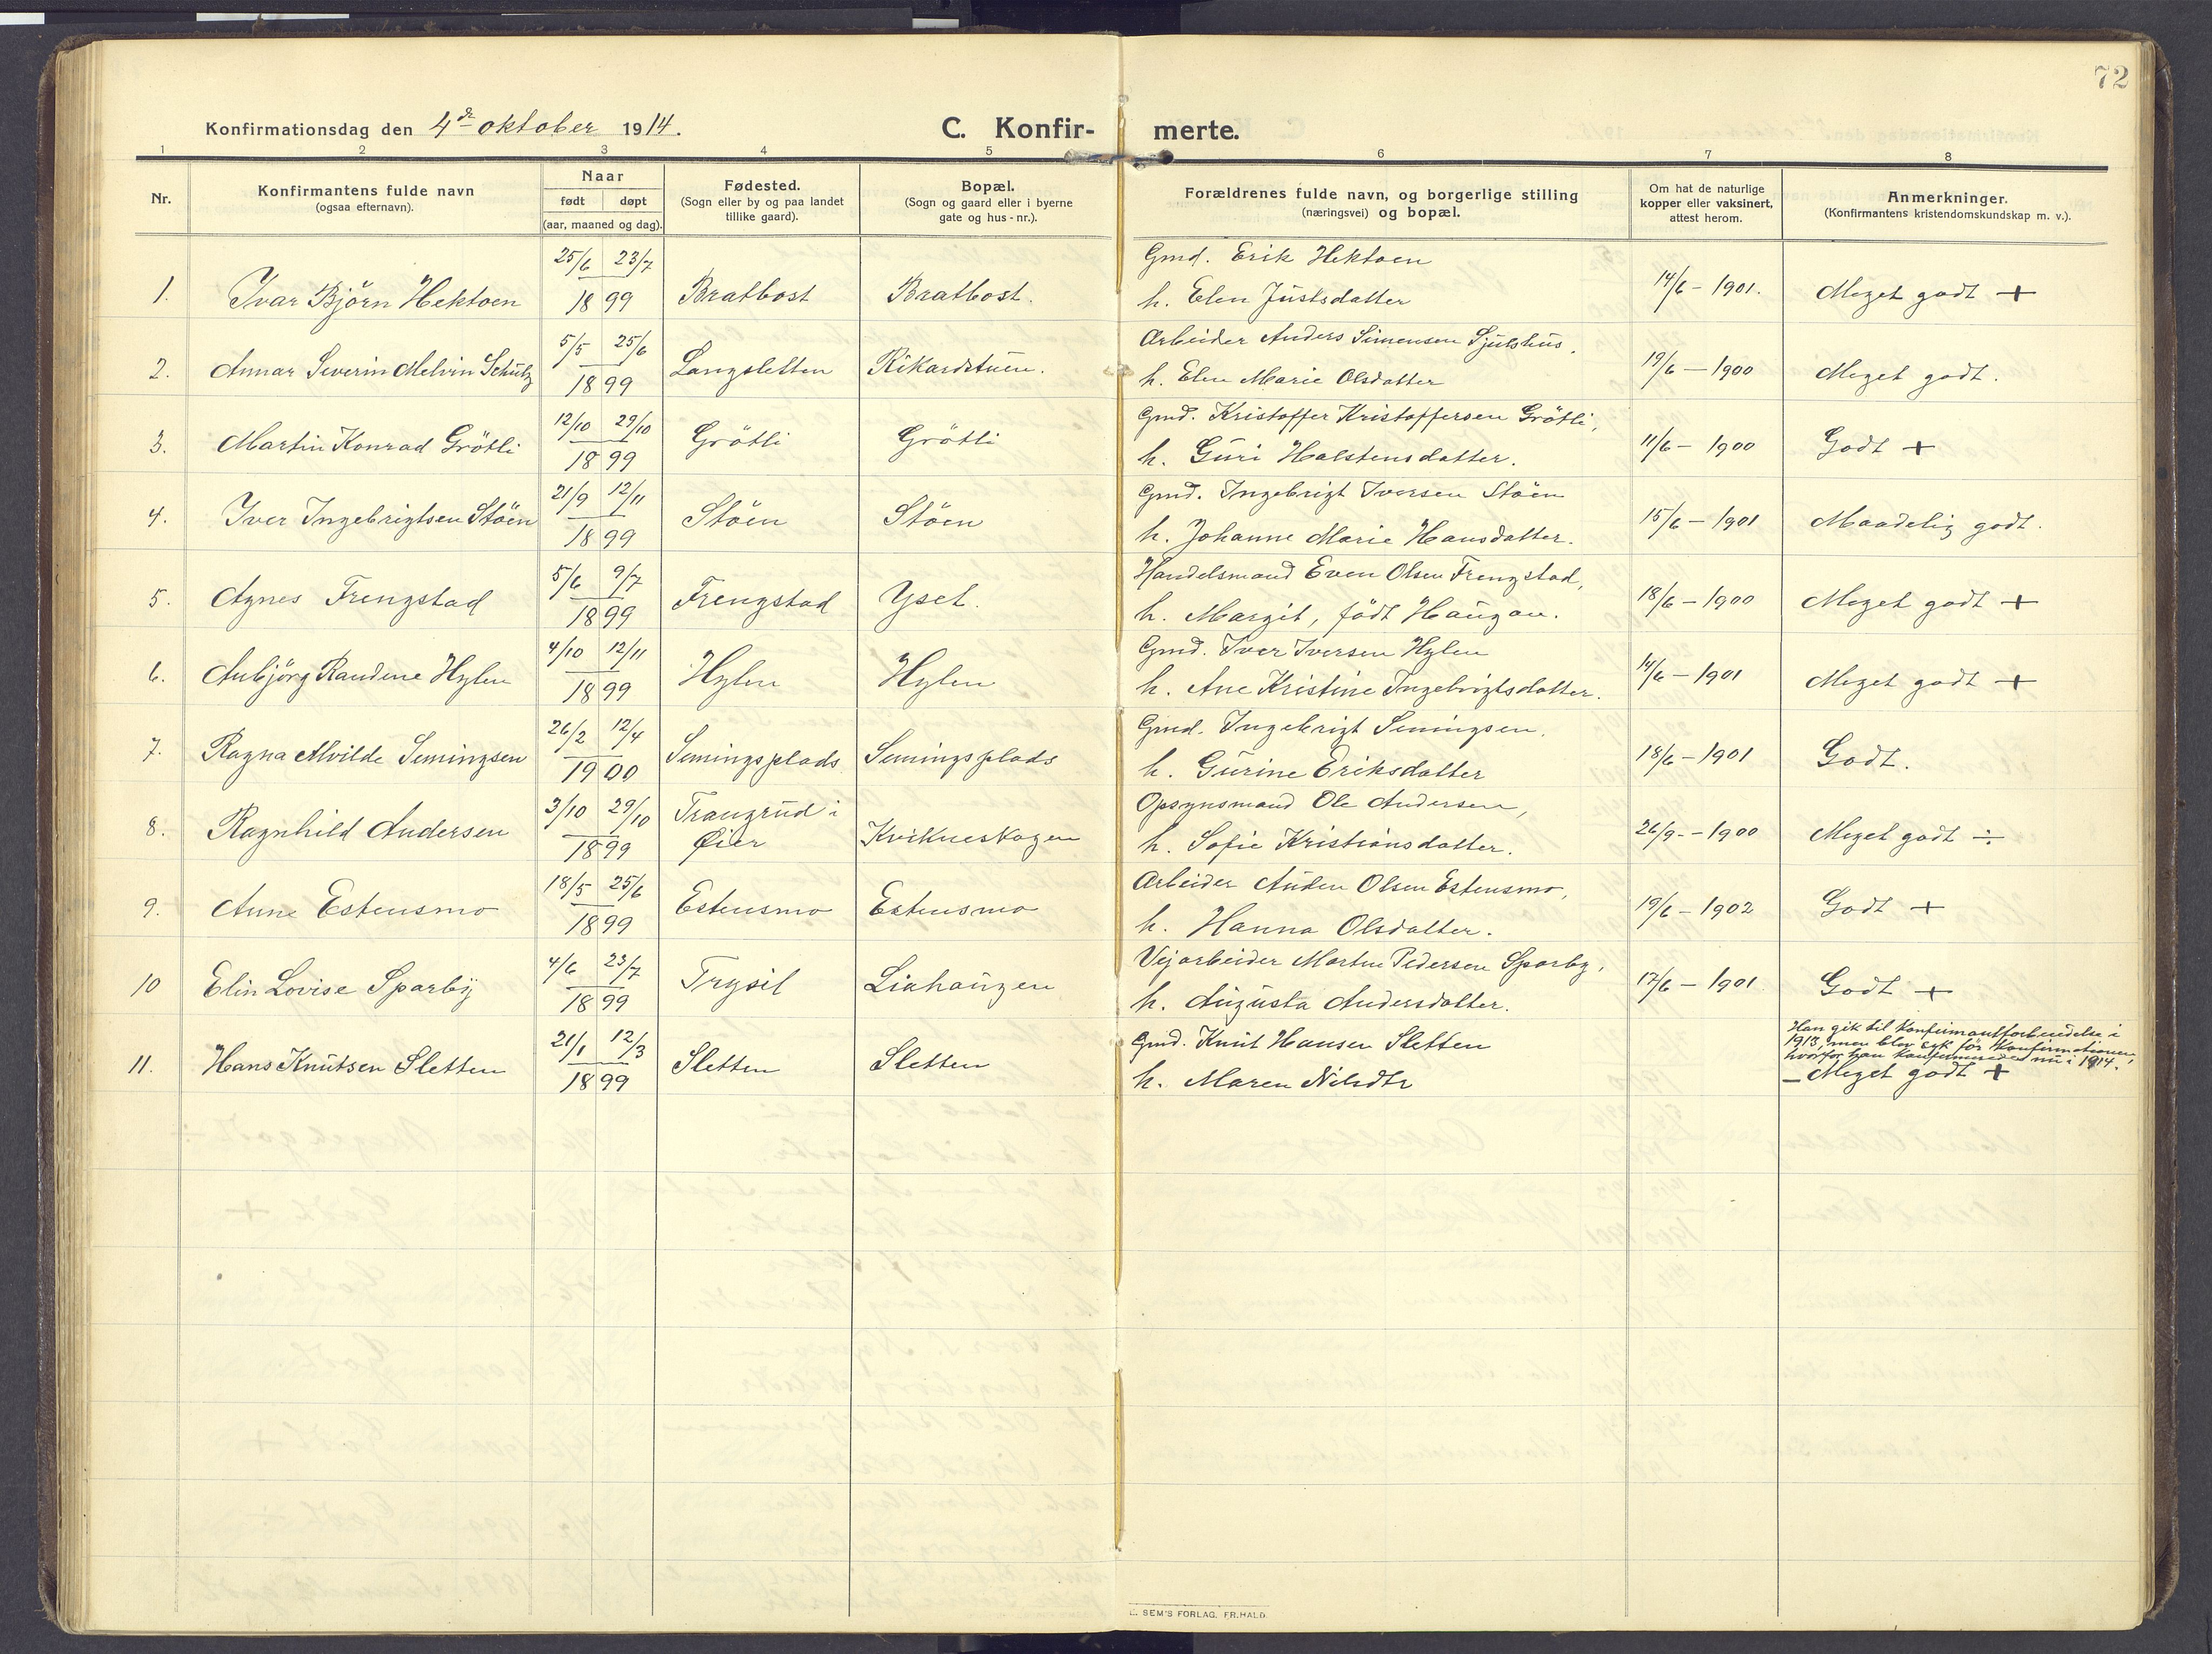 72
Konfirmationsdag den 4de oktober 1914.
C. Konfir- merte.
1 2 3 4 5 6 7 8
Nr.
Konfirmantens fulde navn
(ogsaa efternavn).
Naar
født døpt
(aar, maaned og dag).
Fødested.
(Sogn eller by og paa landet
tillike gaard).
Bopæl.
(Sogn og gaard eller i byerne
gate og hus-nr.).
Forældrenes fulde navn, og borgerlige stilling
(næringsvei) og bopæl.
Om hat de naturlige
kopper eller vaksinert,
attest herom.
Anmerkninger.
(Konfirmantens kristendomskundskap m. v.).
25/6 23/7 Gmd. Erik Hektoen
1. Ivar Björn Hektoen 1899 Bratbost Bratbost. h. Elen Justsdatter 14/6 - 1901. Meget godt +
5/5 25/6 Arbeider Anders Simensen Sjulshus,
2. Annar Severin Melvin Schütz 1899 Langsletten Rikardstuen. h. Elen Marie Olsdatter 19/6 - 1900 Meget godt.
12/10 29/10 Gmd. Kristoffer Kristoffersen Grötli,
3. Martin Konrad Grötli 1899 Grötli Grötli h. Guri Halstensdatter. 11/6 - 1900 Godt +
21/9 12/11 Gmd. Ingebrigt Iversen Stöen
4. Iver Ingebrigtsen Stöen 1899 Stöen Stöen h. Johanne Marie Hansdatter. 15/6 - 1901 Maadelig godt.
5/6 9/7 Handelsmand Even Olsen Frengstad,
5. Agnes Frengstad 1899 Frengstad Yset. h. Margit, födt Haugan. 18/6 - 1900 Meget godt +
4/10 12/11 Gmd. Iver Iversen Hylen
6. Anbjörg Randine Hylen 1899 Hylen Hylen h. Ane Kristine Ingebrigtsdatter. 14/6 - 1901 Meget godt +
26/2 12/4 Gmd. Ingebrigt Semingsen,
7. Ragna Alvilde Semingsen 1900 Semingsplads Semingsplads h. Gurine Eriksdatter 18/6 - 1901 Godt.
3/10 29/10 Trangrud i Opsynsmand Ole Andersen,
8. Ragnhild Andersen 1899 Øier Kvikneskogen h. Sofie Kristiansdatter. 26/9 - 1900 Meget godt ÷
18/5 25/6 Arbeider Auden Olsen Estensmo,
9. Anne Estensmo 1899 Estensmo Estensmo h. Hanna Olsdatter. 19/6 - 1902 Godt +
4/6 23/7 Vejarbeider Martin Pedersen Sparby,
10 Elin Lovise Sparby 1899 Trysil Liahaugen h. Augusta Andersdatter. 17/6 - 1901 Godt +
21/1 12/3 Gmd. Knut Hansen Sletten
11. Hans Knutsen Sletten 1899 Sletten Sletten h. Maren Nilsdtr
Han gik til konfirmantforberedelse i
1913, men blev syk før konfirmationen,
hvorfor han konfirmeredes nu i 1914.
- Meget godt +
SEM'S FORLAG, FR.HALD.